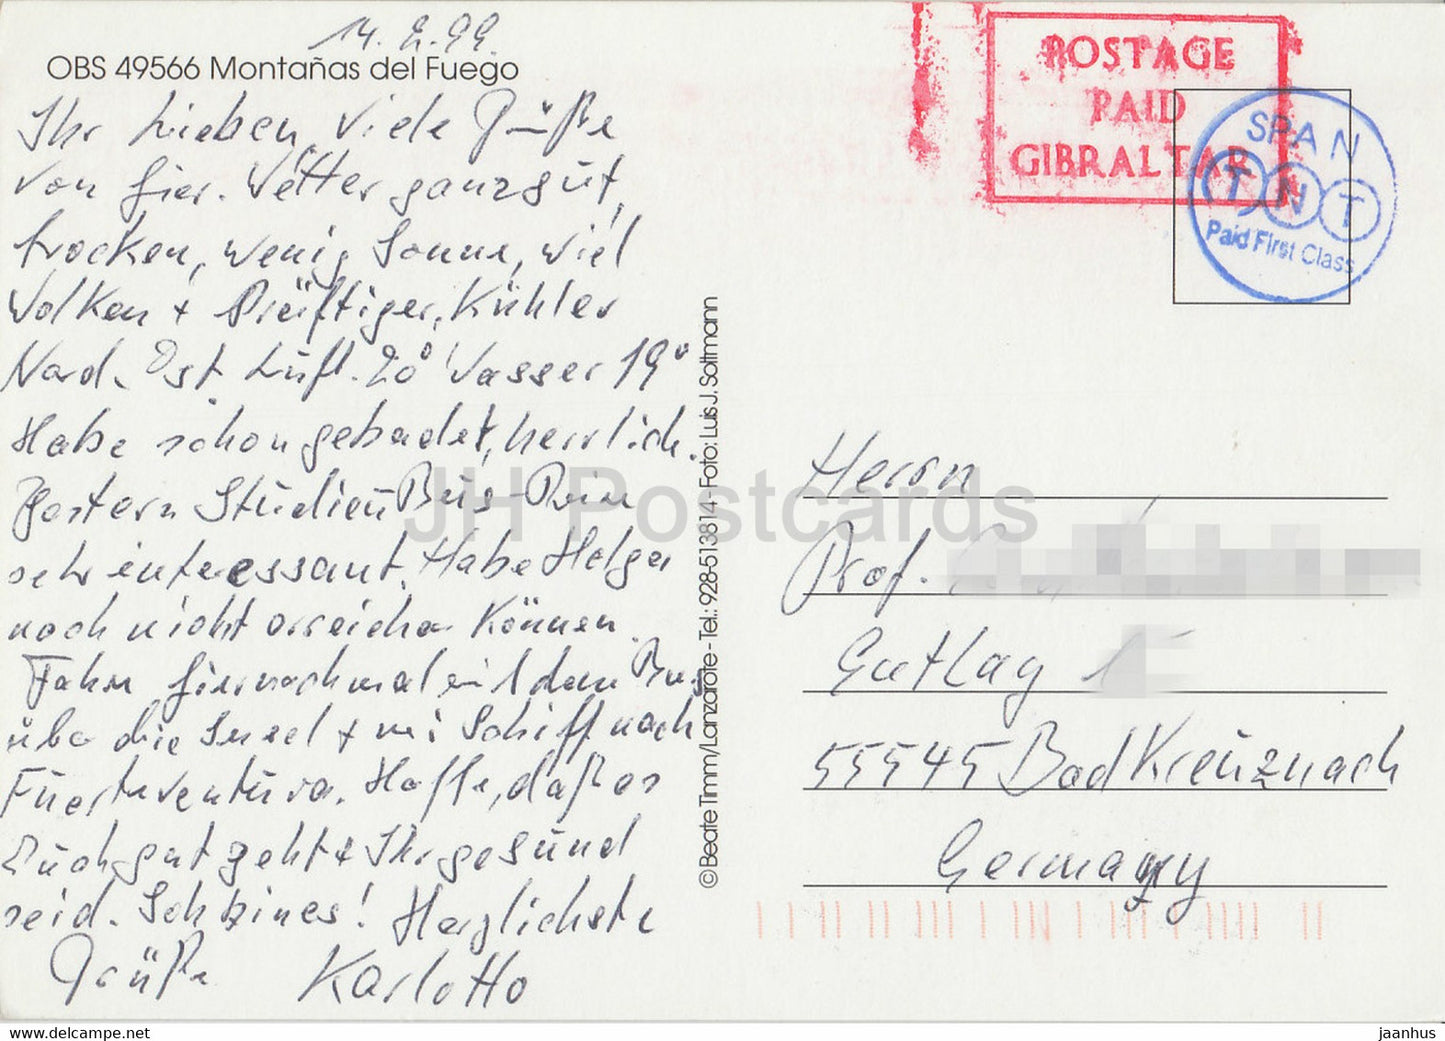 14. 2. 99.
OBS 49566 Montañas del Fuego
Ihr Lieben, Viele Grüße
von hier. Wetter ganz gut,
trocken, wenig Sonne, viel
Wolken + kräftiger, kühler
Nord-Ost Luft. 20° Wasser 19°
Habe schon gebadet, herrlich.
Gestern Studien Bus-Reise
sehr interessant. Habe Holger
noch nicht erreichen können.
Fahre hier nochmal mit dem Bus
über die Insel + mit Schiff nach
Fuerteventura. Hoffe, daß es
Euch gut geht + Ihr gesund
seid. Herzlichste
Grüße Karlotto
©Beate Timm/Lanzarote - Tel.: 928-513814 - Foto: Luis J. Soltmann
POSTAGE
PAID
GIBRALTAR
SPAIN
TNT
Paid First Class
Herrn
Prof.
Gutlay
55545 Bad Kreuznach
Germany
JH Postcards
www.delcampe.net
jaanhus